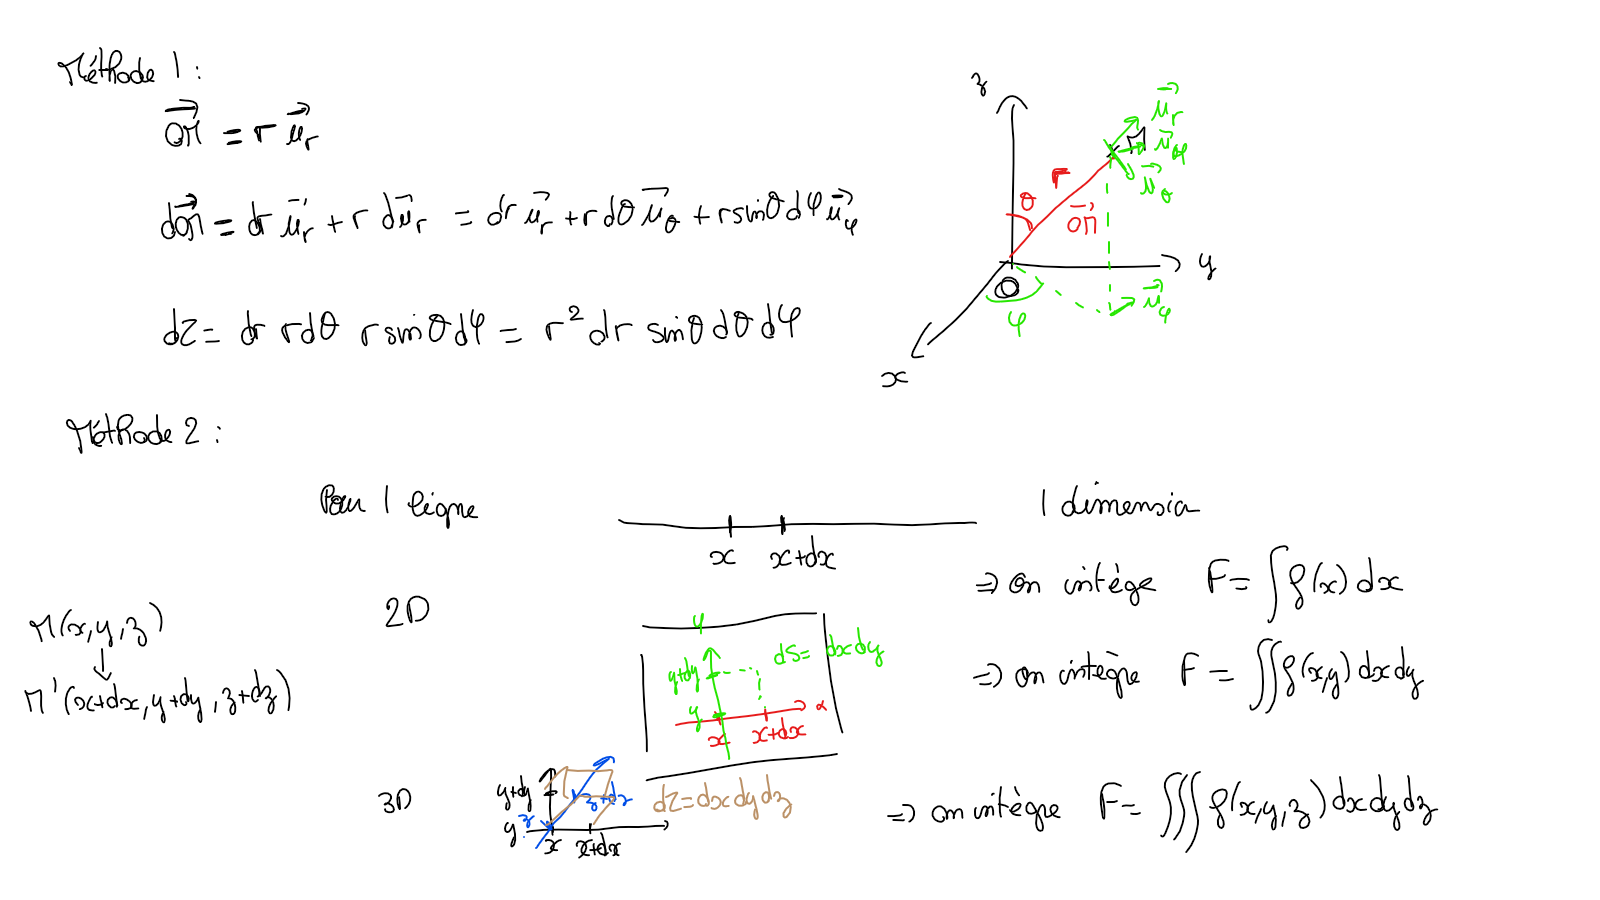 Méthode 1 :
OM = r u_r
dOM = dr u_r + r du_r = dr u_r + r dθ u_θ + r sinθ dφ u_φ
dτ = dr r dθ r sinθ dφ = r² dr sinθ dθ dφ
z
u_r
M
u_φ
u_θ
r
θ
OM
y
O
u_φ
φ
x
Méthode 2 :
Pour 1 ligne
x x+dx
1 dimension
⇒ on intège F = ∫ f(x) dx
M(x,y,z)
↓
M'(x+dx, y+dy, z+dz)
2D
y
y+dy
dS = dxdy
y
x x+dx
x
⇒ on intègre F = ∫∫ f(x,y) dxdy
3D
y+dy
z+dz
z
y
x x+dx
dτ = dxdydz
⇒ on intègre F = ∫∫∫ f(x,y,z) dxdydz